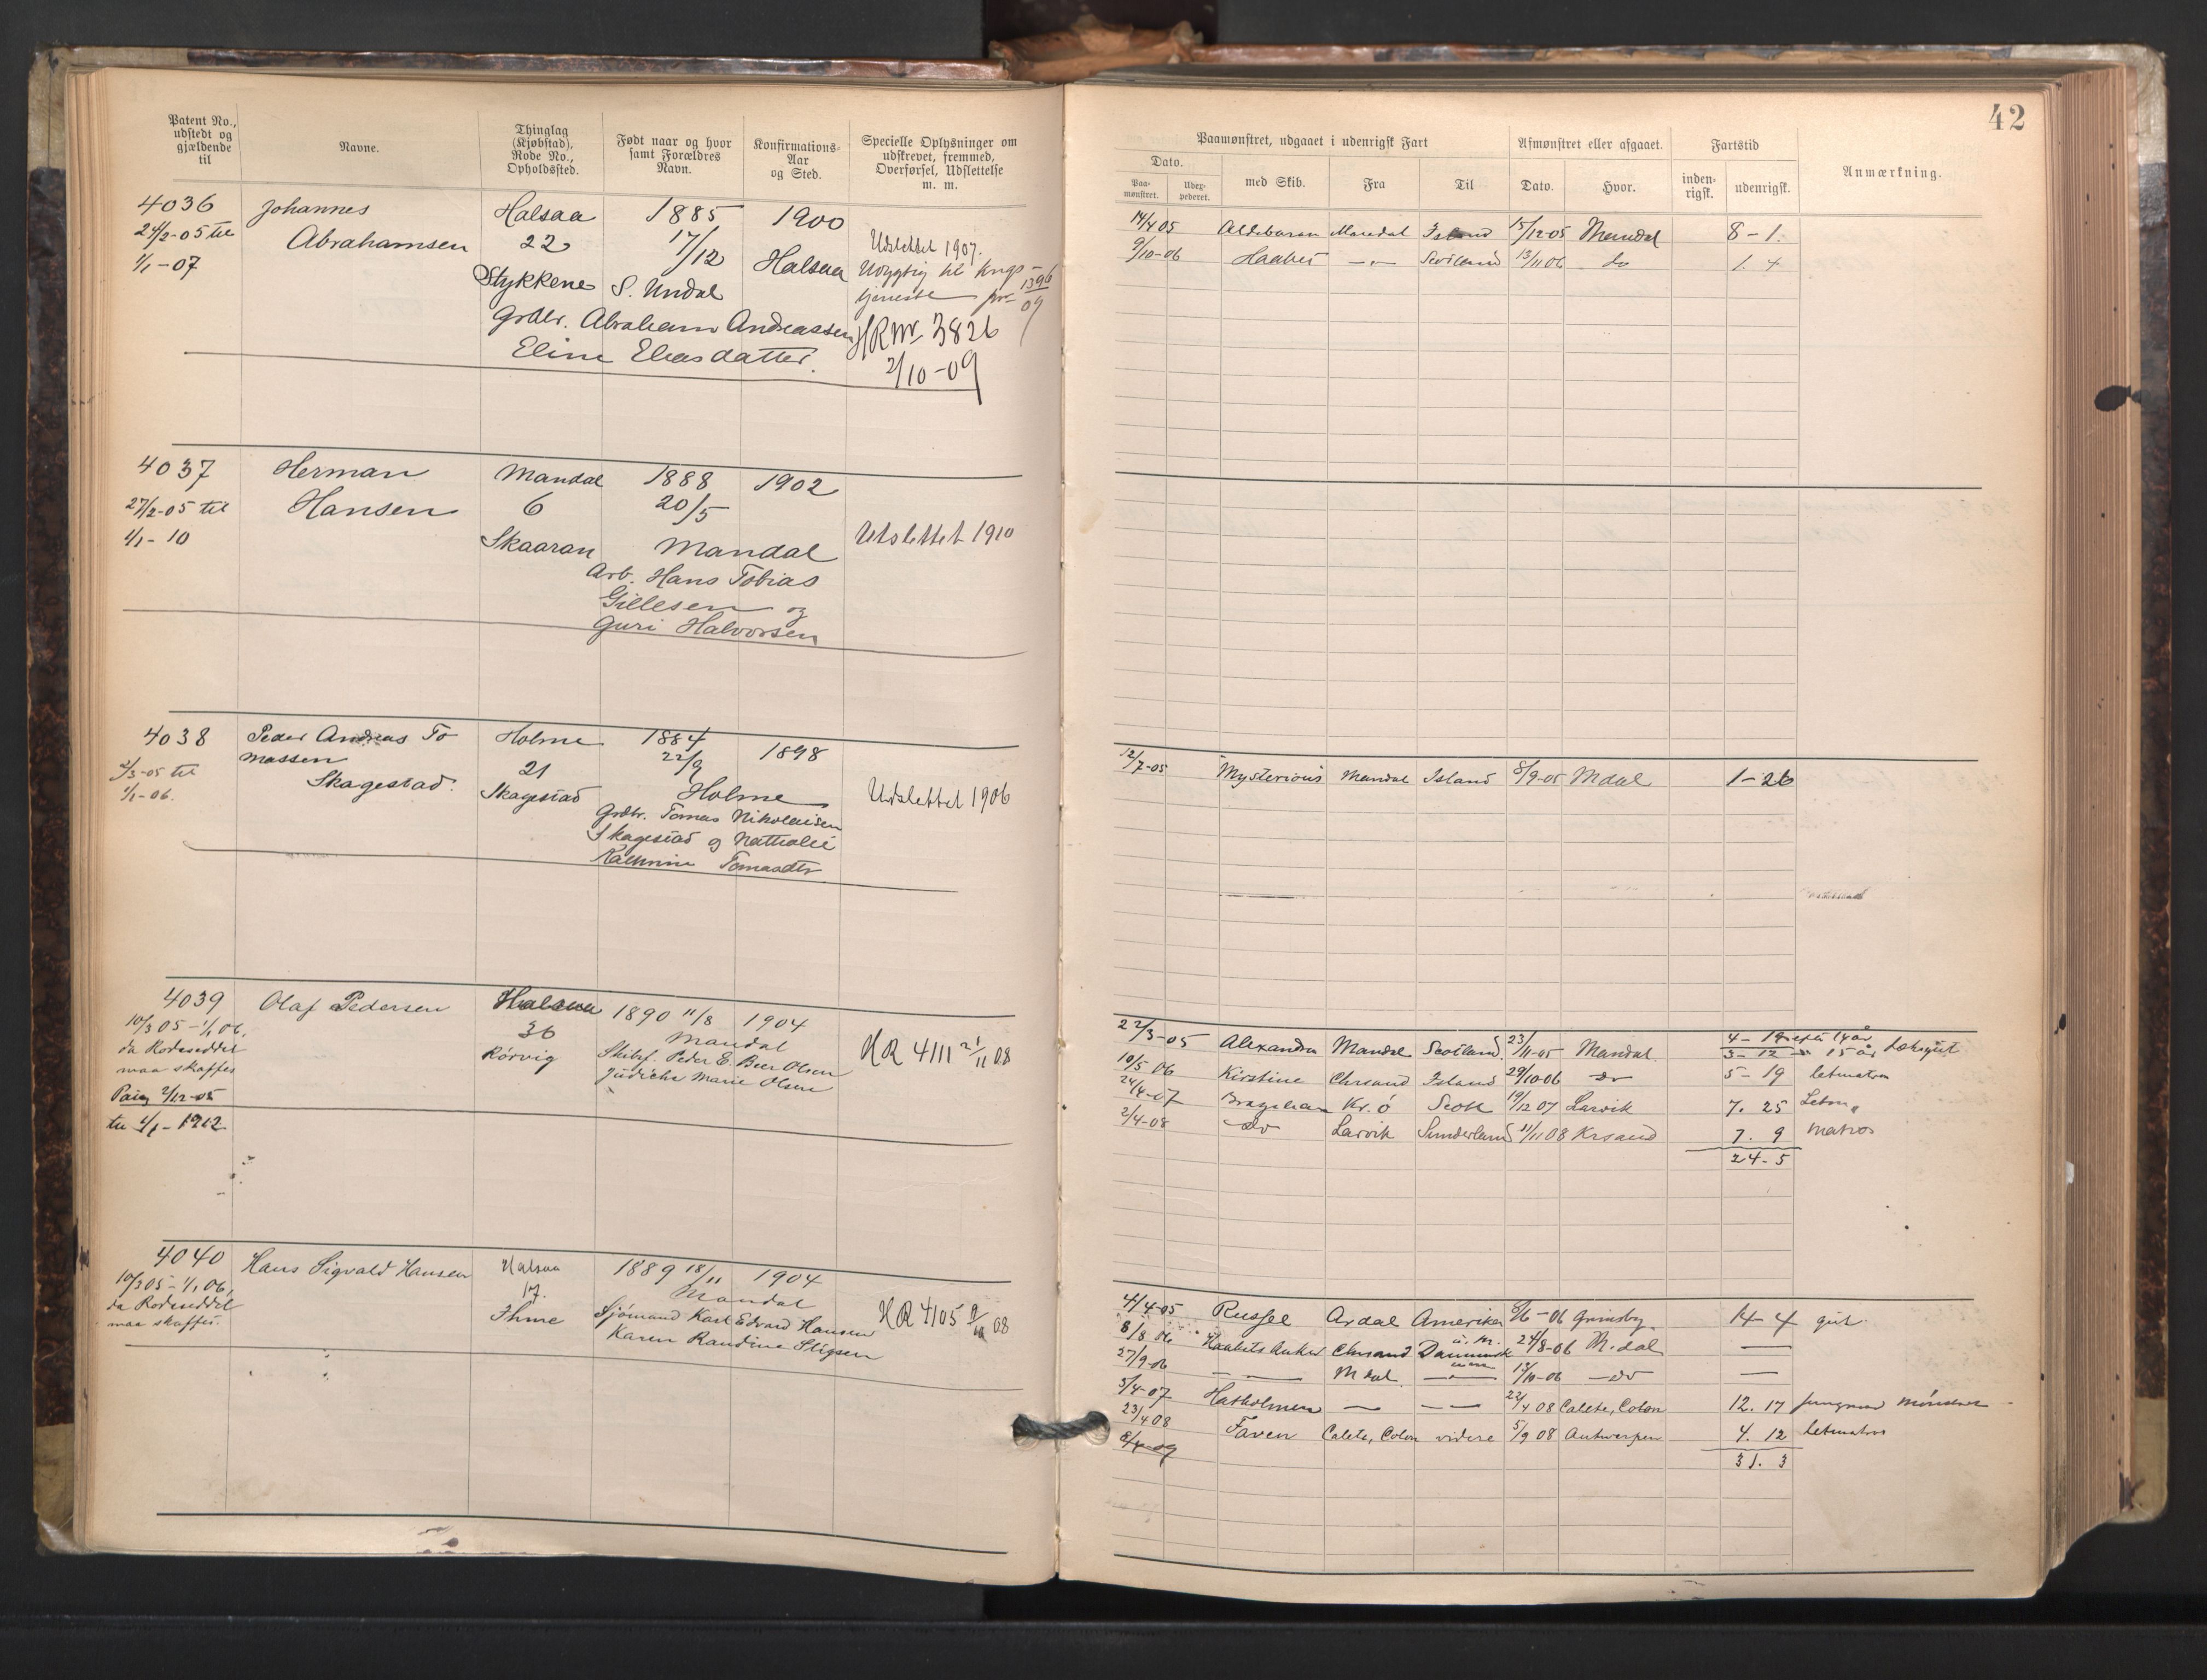 42
Patent No., udstedt og gjældende til
Navne.
Thinglag (Kjøbstad), Rode No., Opholdssted.
Født naar og hvor samt Forældres Navn.
Konfirmations-Aar og Sted.
Specielle Oplysninger om udskrevet, fremmed, Overførsel, Udslettelse m. m.
Paamønstret, udgaaet i udenrigsk Fart
Afmønstret eller afgaaet.
Fartstid
Anmærkning.
Dato.
Paa-mønstret.
Udex-pederet.
med Skib.
Fra
Til
Dato.
Hvor.
inden-rigsk.
udenrigsk.
4036 Johannes Halsaa 1885 1900
24/2-05 til Abrahamsen 22 17/12 Halsaa Udslettet 1907.
1/1-07 Stykkene S. Undal Udygtig til krigs-
tjeneste 1396/09
Grdbr. Abraham Andreassen HR Nr 3826
Eline Eliasdatter. 2/10-09
14/4 05 Aldebaran Mandal Island 15/12-05 Mandal 8-1.
9/10-06 Haabet —"— Scotland 13/11 06 do 1. 4
4037 Herman Mandal 1888 1902
27/2-05 til Hansen 6 20/5
1/1-10 Skaaran Mandal Utslettet 1910
Arb. Hans Tobias
Gillesen og
Guri Halvorsen
4038 Peder Andreas To Holme 1884 1898
massen 21 22/9
2/3-05 til Skagestad. Skagestad Holme Udslettet 1906
1/1-06. Grdbr. Tomas Nikolaisen
Skagestad og Nathalie
Tomasdtr
12/7-05 Mysterious Mandal Island 8/9-05 Mdal 1-26
4039 Olaf Pedersen Halsaa 1890 11/8 1904
10/3 05 - 1/1 06, 36 Mandal
da Rodeseddel Rørvig Peder E. Beer Olsen HR 4111 21/11 08
maa skaffes Marie Olsen
2/12-05
til 1/1-1912
22/3-05 Alexandra Mandal Scotland 23/11-05 Mandal 4-19 efter 14 år
3-12 " 15 år
10/5 06 Kirstine Chrsand Island 29/10-06 do 5-19 letmatros
24/4-07 Kr. ø Scotl 19/12 07 Larvik 7. 25 Letm "
2/4-08 do Larvik Sunderland 11/11 08 Krsand 7. 9 matros
24-5
4040 Hans Sigvald Hansen Halsaa 1889 18/11 1904
10/3 05 - 1/1 06, 17. Mandal
da Rodeseddel Ihme Sjømand Karl Edvard Hansen HR 4105 08
maa skaffes. Karen Randine Stigsen
4/4-05 Russel Ardal Amerika 8/6-06 Grimsby 14-4 gut.
8/8 06 Haabets Anker Chrsand Danmark 24/8-06 M.dal —
27/9-06 —"— M dal —"— 13/10-06 do —
5/4-07 Hatholmen — — 22/4 08 Calete, Colon 12. 17 jungmand
23/4 08 Faven Calete, Colon videre 5/9 08 Antwerpen 4. 12 letmatros
31. 3